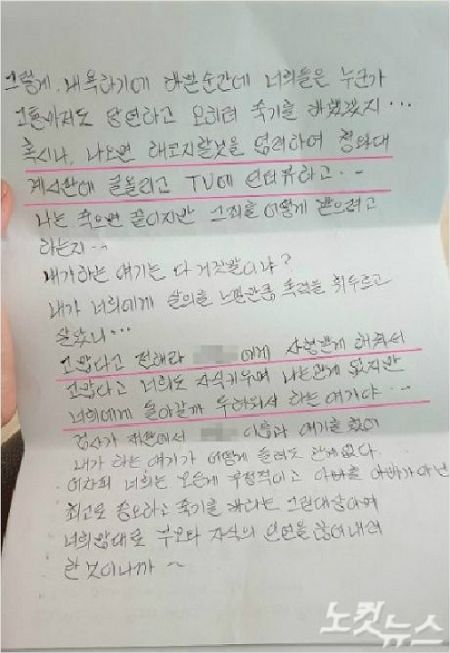 그렇게 내욕하기에 바쁜순간에 너희들은 누군가
고통아지도 당연하고 오히려 죽기를 바랬겠지...
혹시나, 나오면 해코지할것을 염려하여 청와대
게시판에 글올리고 TV에 인터뷰하고...
나는 죽으면 끝이지만 그죄를 어떻게 받으려고
하는지..
내가하는 얘기는 다 거짓말이냐?
내가 너희에게 살의를 느낄만큼 폭력을 휘두르고
살았니...
고맙다고 전해라 에게 사형받게 해줘서
고맙다고 너희도 자식키우며 나는관계 없지만
너희에게 돌아갈까 두려워서 하는 얘기야...
검사가 재판에서 이름과 얘기를 했어
내가 하는 얘기가 어떻게 들려도 관계없다.
어차피 너희는 모든게 부정적이고 아빠를 아빠가 아닌
최고로 증오하고 죽기를 바라는 그런대상이며
너희말대로 부모와 자식의 인연을 끊어내려
한것이니까~
노컷뉴스